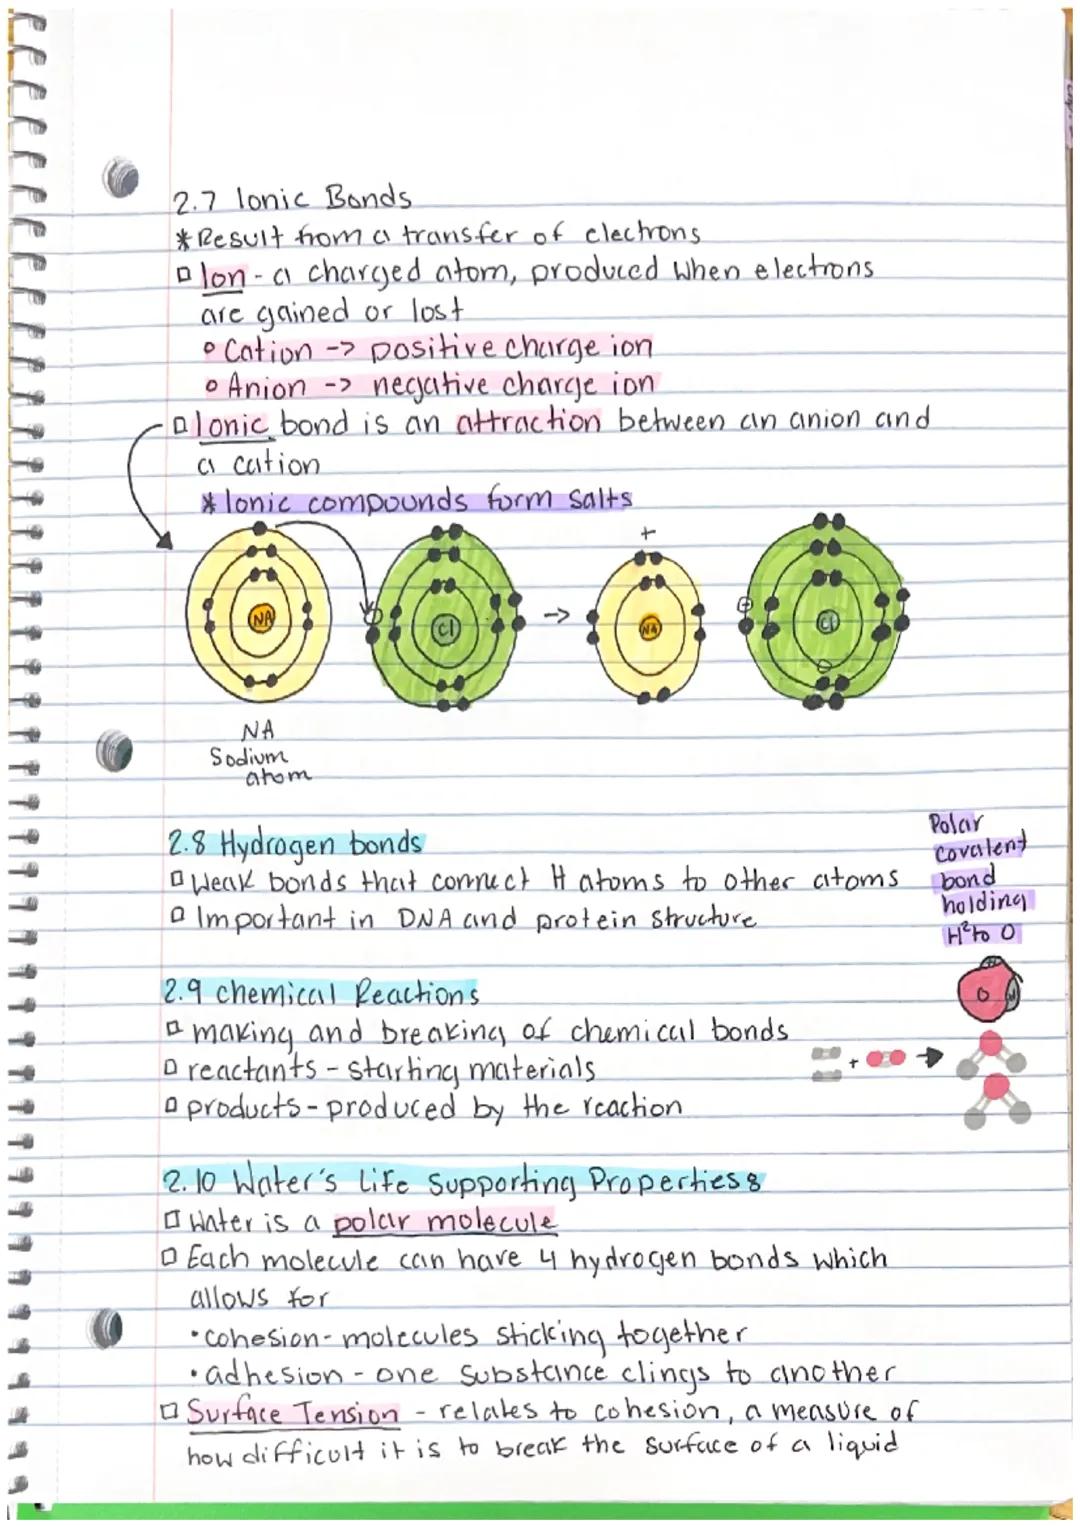 2.7 Ionic Bonds
*Result from a transfer of electrons
Ion - a charged atom, produced when electrons
are gained or lost
Cation -> positive charge ion
Anion -> negative charge ion
Ionic bond is an attraction between an anion and
a cation
* Ionic compounds form salts
+
NA
Cl
->
Na
Cl
NA
Sodium
atom
2.8 Hydrogen bonds
Weak bonds that connect H atoms to other atoms
Important in DNA and protein structure
Polar
covalent
bond
holding
H² to O
2.9 chemical Reactions
making and breaking of chemical bonds
reactants - starting materials
products - produced by the reaction
O
H
+
2.10 Water's Life Supporting Properties:
Water is a polar molecule
Each molecule can have 4 hydrogen bonds which
allows for
• cohesion - molecules sticking together
• adhesion - one substance clings to another
Surface Tension - relates to cohesion, a measure of
how difficult it is to break the surface of a liquid